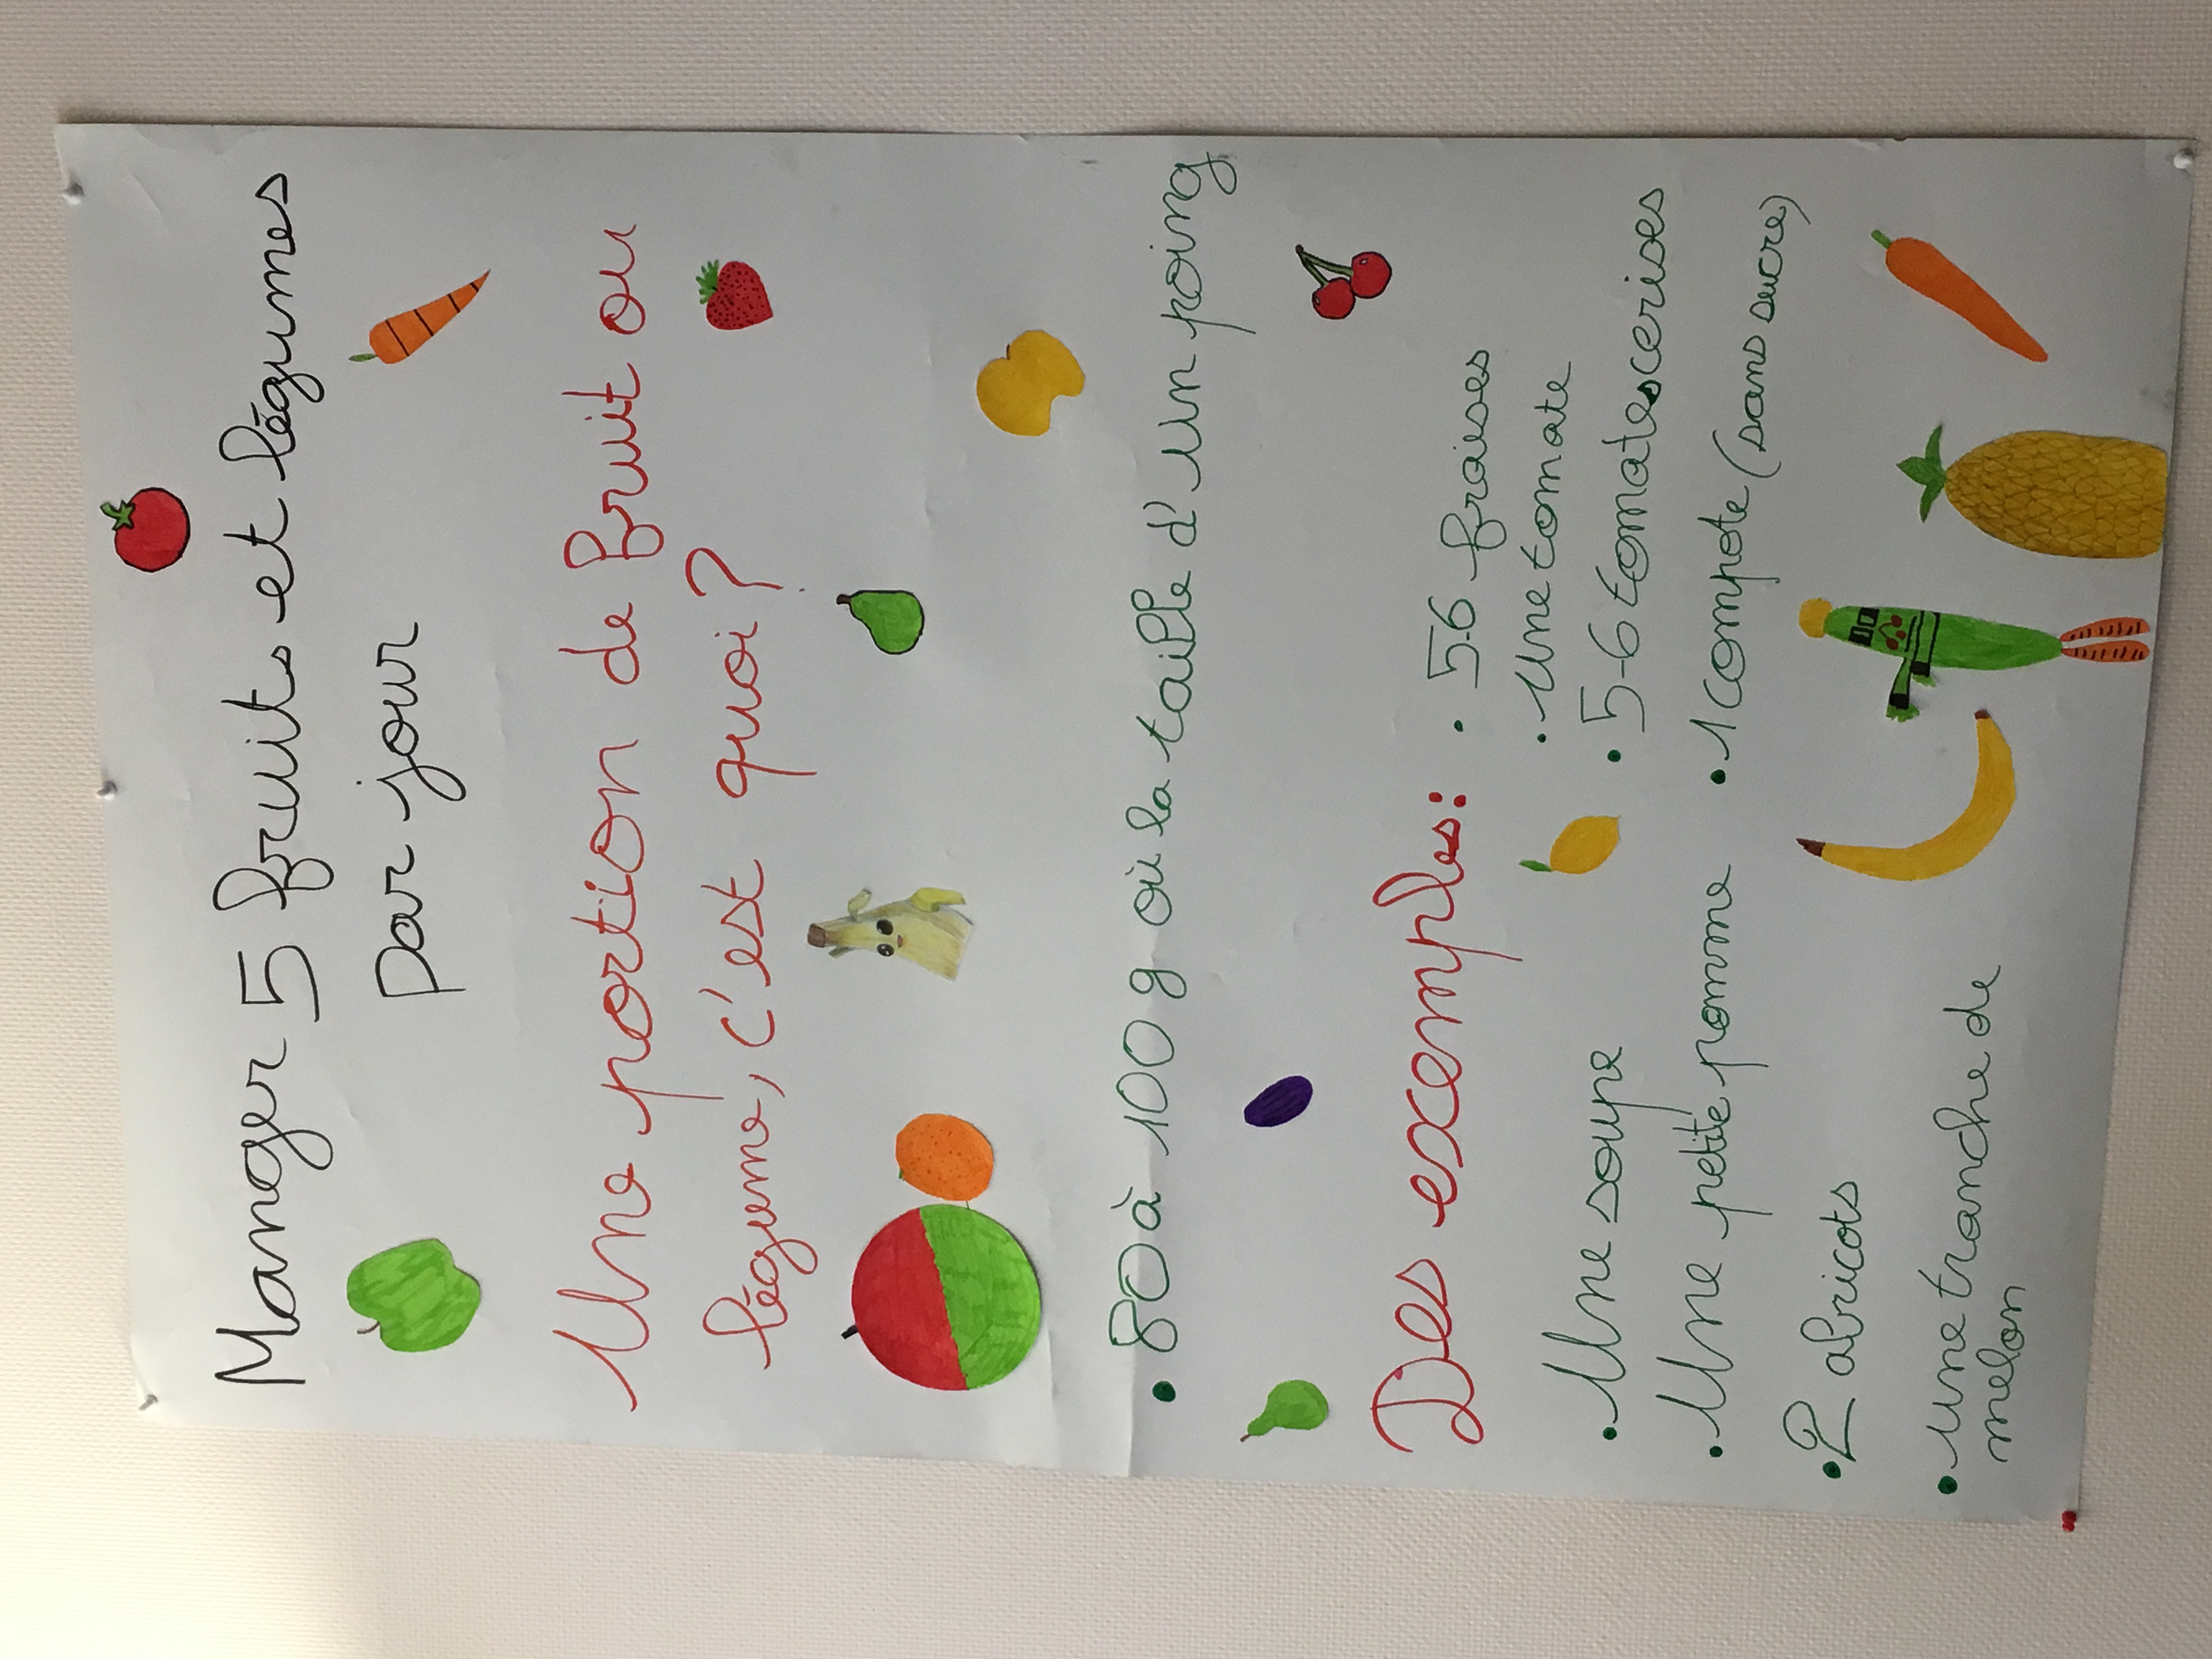 Manger 5 fruits et légumes
par jour
Une portion de fruit ou
légume, c'est quoi ?
• 80 à 100 g où la taille d'un poing
Des excemples :
• Une soupe
• Une petite pomme
• 2 abricots
• une tranche de
melon
• 5-6 fraises
• Une tomate
• 5-6 tomates cerises
• 1 compote (sans sucre)